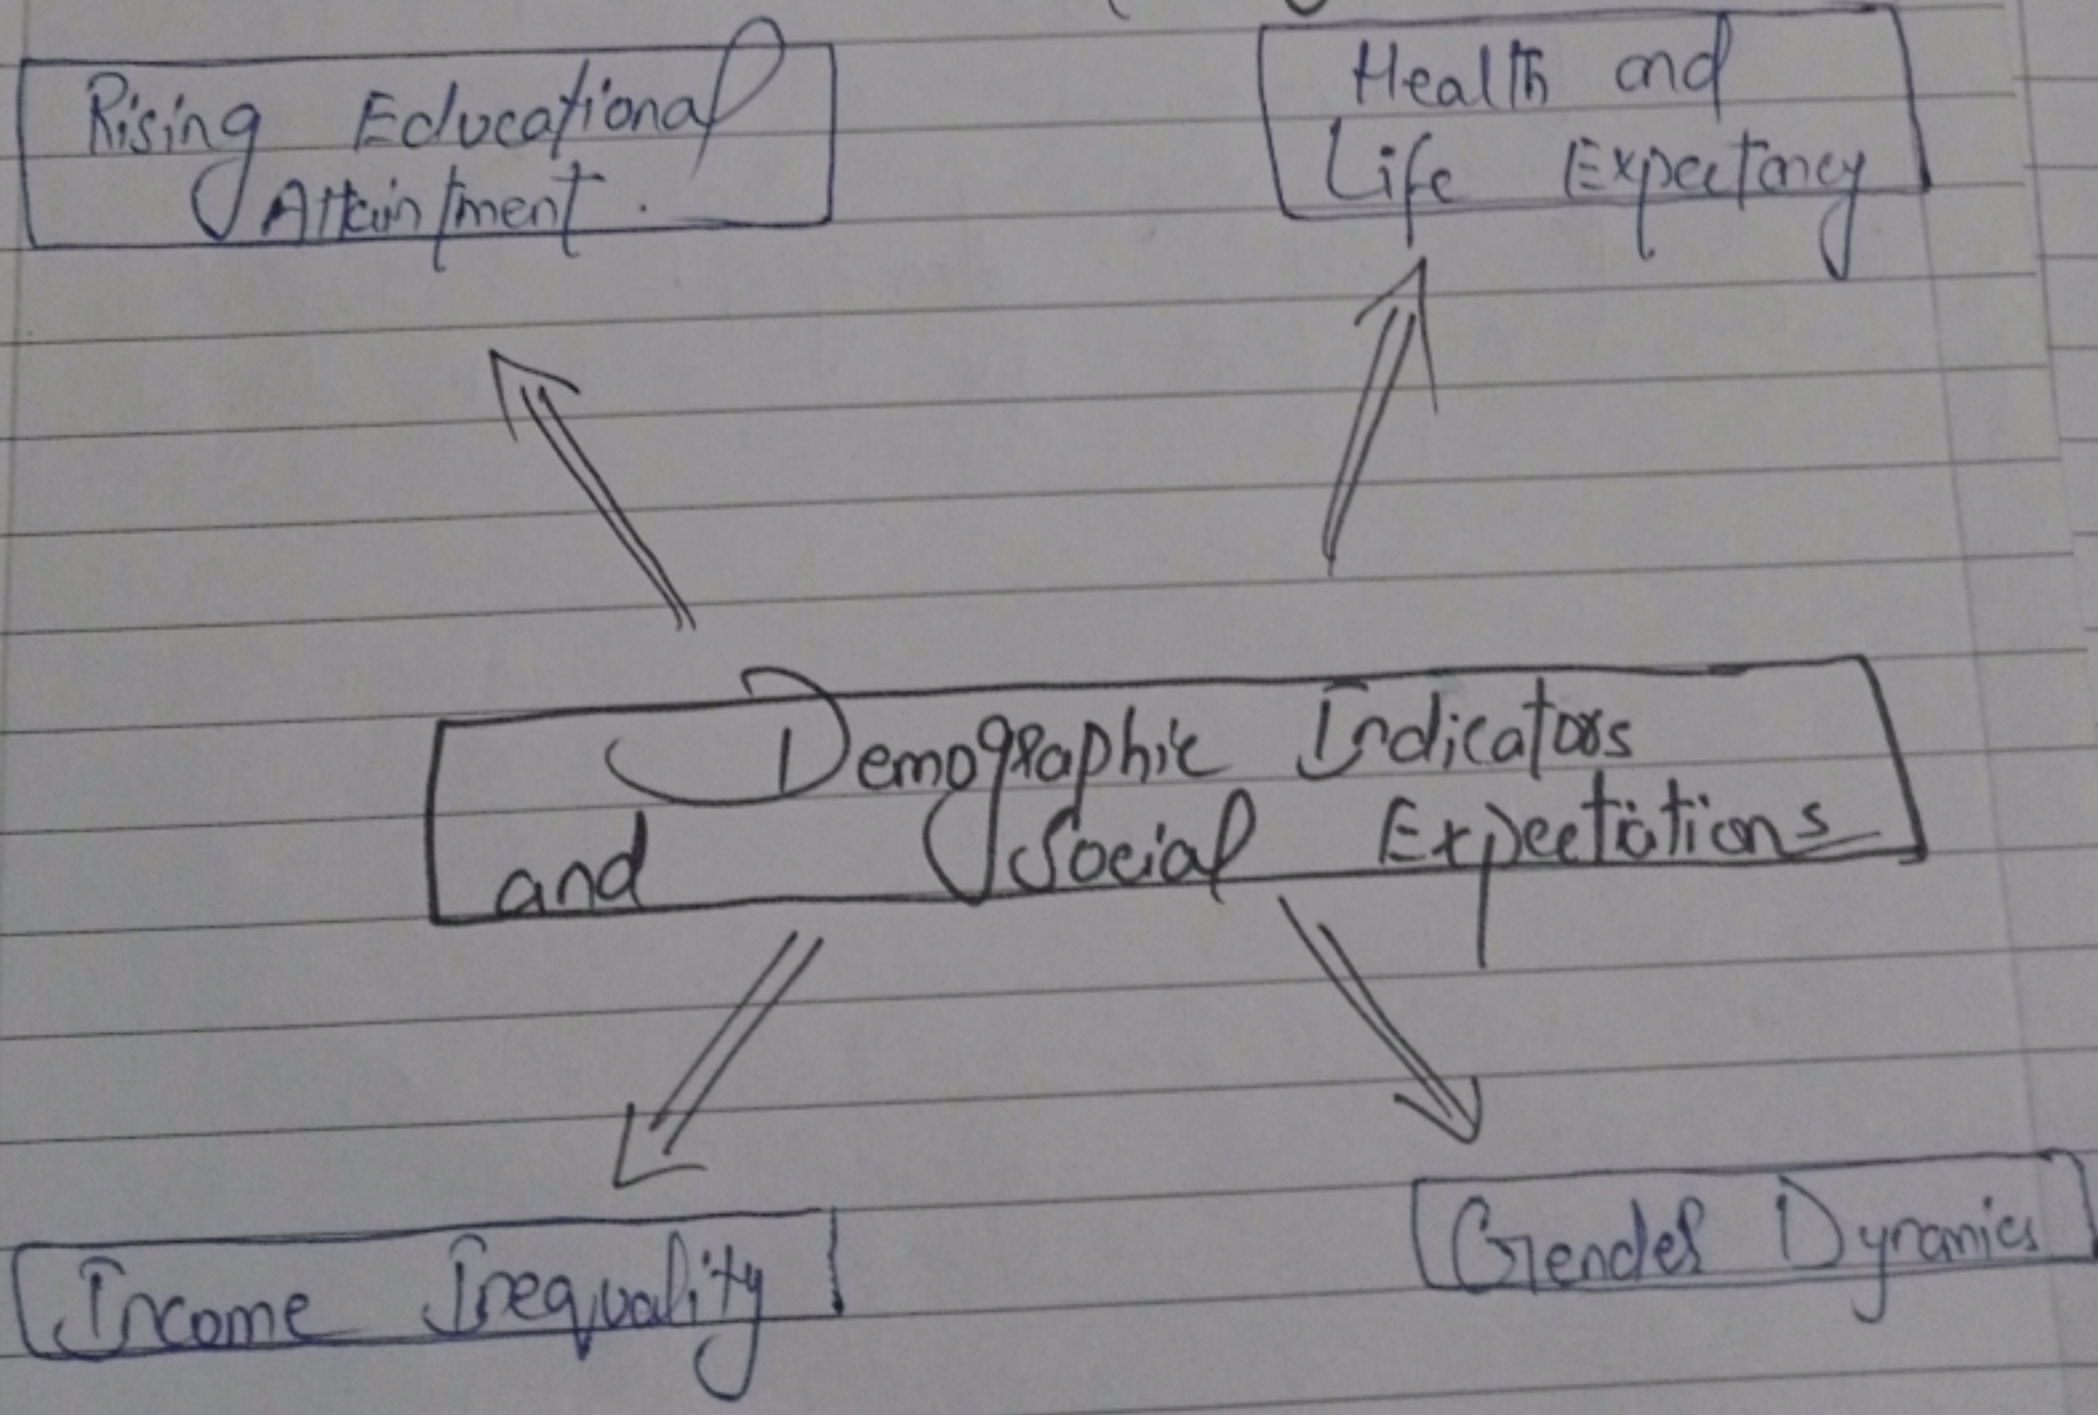 Rising Educational
Attaintment.
Health and
Life Expectancy
Demographic Indicators
and Social Expectations
Income Inequality
Gender Dynamics